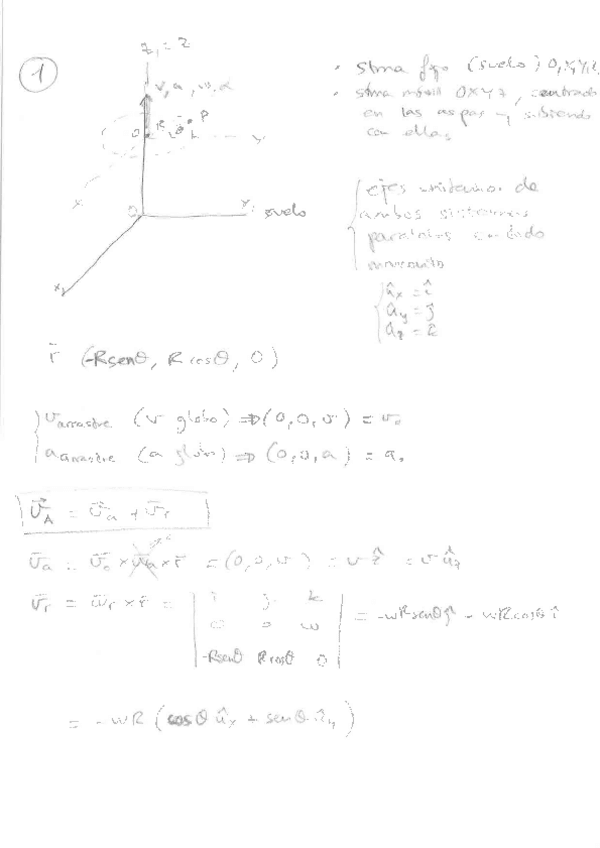 1
z₁ = z
v, a, ω, α
P
R
θ
O
y
x
O₁
y₁ suelo
x₁
· Stma fijo (suelo) O₁X₁Y₁Z₁
· stma móvil OXYZ, centrado
en las aspas y subiendo
con ellas
ejes unitarios de
ambos sistemas
paralelos en todo
momento
û_x = î
û_y = ĵ
û_z = k̂
r̄ (-Rsenθ, Rcosθ, 0)
v arrastre (v globo) ⇒ (0,0,v) = v₀
a arrastre (a globo) ⇒ (0,0,a) = a₀
v̄_A = v̄_a + v̄_r
v̄_a = v̄₀ × w̄_a × r̄ = (0,0,v) = v k̂ = v û_z
v̄_r = w̄_r × r̄ = | i j k | = -wRsenθ ĵ - wRcosθ î
0 0 w
-Rsenθ Rcosθ 0
= -wR (cosθ û_x + senθ û_y)